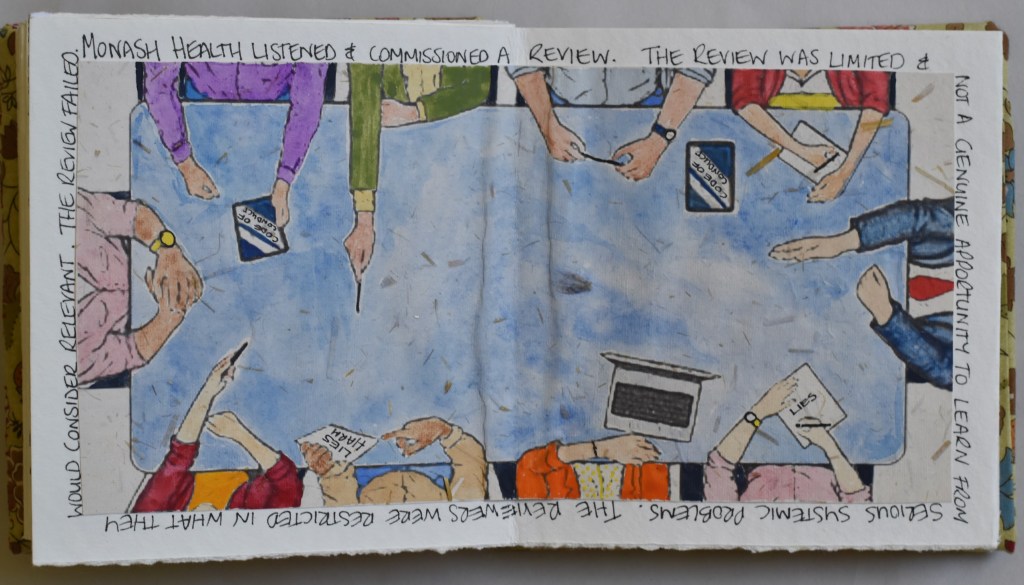 MONASH HEALTH LISTENED & COMMISSIONED A REVIEW. THE REVIEW WAS LIMITED &
NOT A GENUINE APPORTUNITY TO LEARN FROM
SERIOUS SYSTEMIC PROBLEMS. THE REVIEWERS WERE RESTRICTED IN WHAT THEY
WOULD CONSIDER RELEVANT. THE REVIEW FAILED.
CODE OF
CONDUCT
CODE OF
CONDUCT
LIES
HARM
LIES